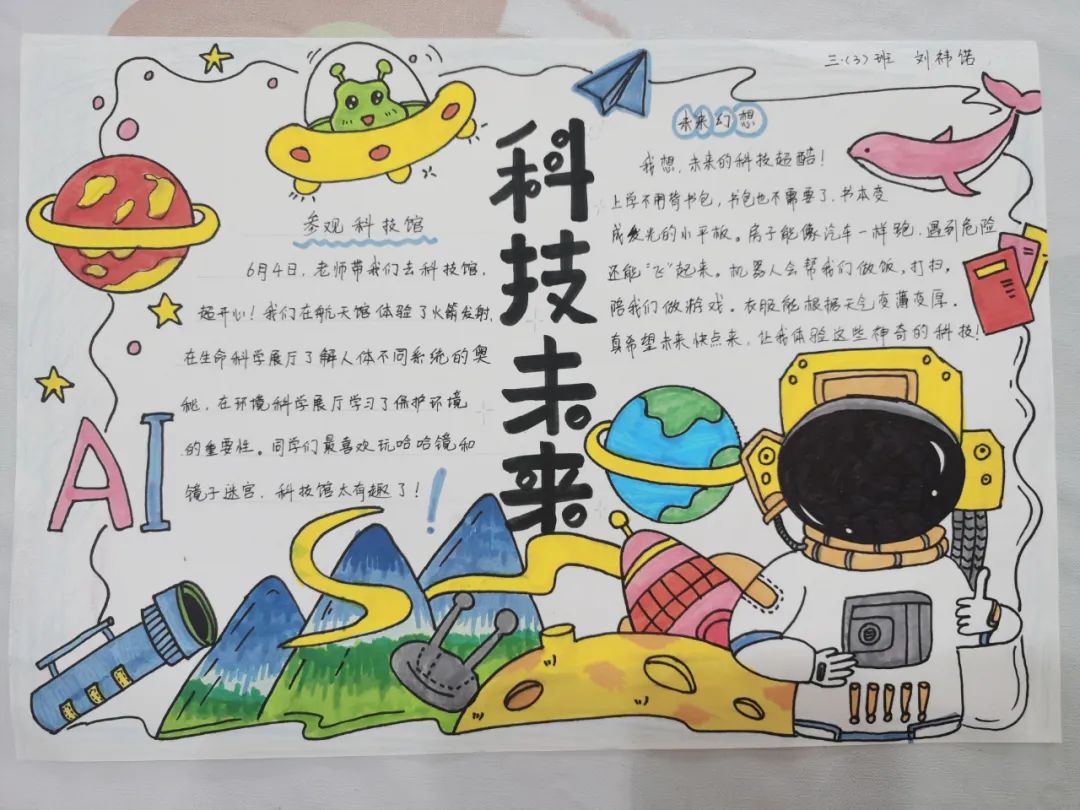 三.(3)班 刘祎诺
科技未来
参观科技馆
6月4日，老师带我们去科技馆，
超开心！我们在航天馆体验了火箭发射，
在生命科学展厅了解人体不同系统的奥
秘，在环境科学展厅学习了保护环境
的重要性。同学们最喜欢玩哈哈镜和
镜子迷宫，科技馆太有趣了！
未来幻想
我想，未来的科技超酷！
上学不用背书包，书包也不需要了，书本变
成发光的小平板。房子能像汽车一样跑，遇到危险
还能“飞”起来。机器人会帮我们做饭，打扫，
陪我们做游戏。衣服能根据天气变薄变厚。
真希望未来快点来，让我体验这些神奇的科技！
AI